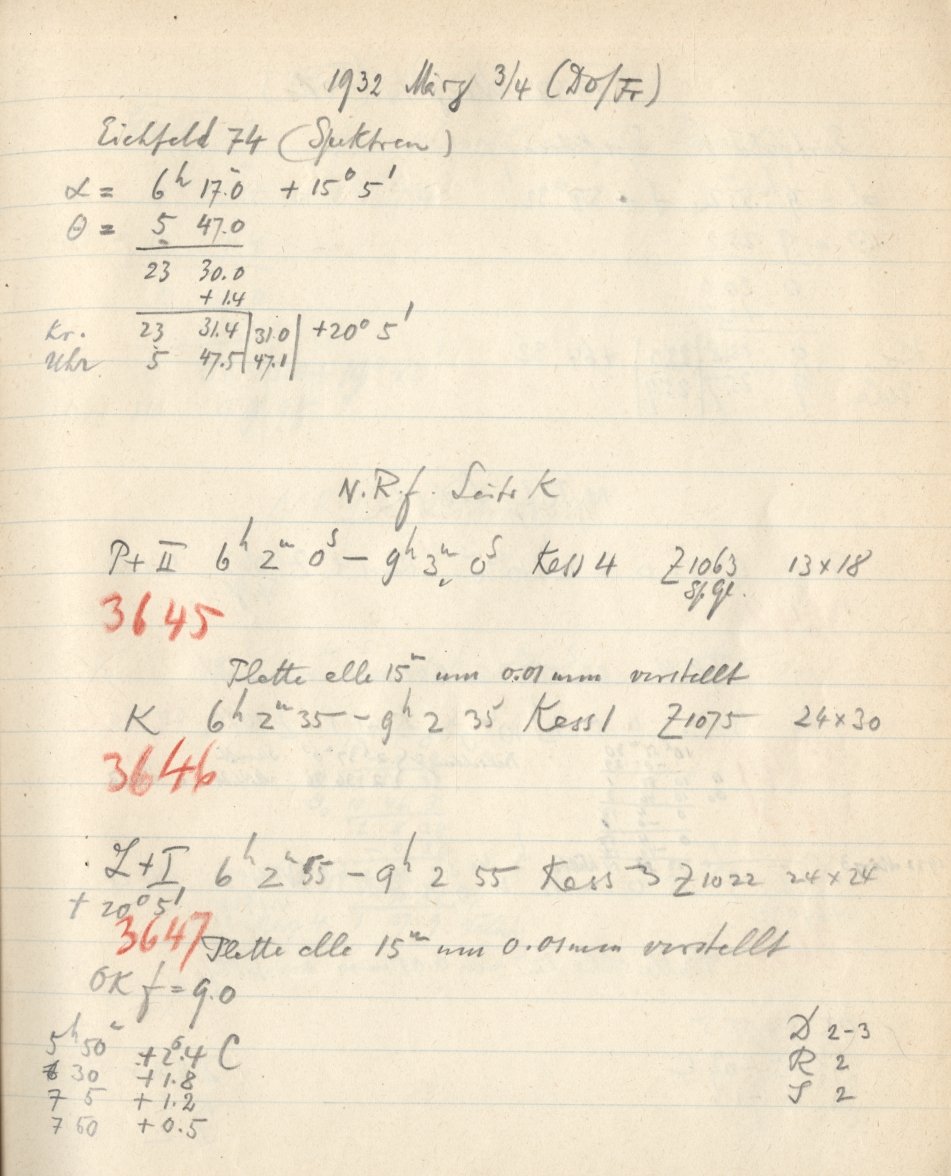 1932 März 3/4 (Do/Fr)
Eichfeld 74 (Spektren)
α = 6h 17.m0 + 15° 5'
θ = 5 47.0
23 30.0
+ 1.4
Kr. 23 31.4 | 31.0 | +20° 5'
Uhr 5 47.5 | 47.1 |
N.R.f. Seite K
P+II 6h 2m 0s – 9h 3m 0s Kass 4 Z1063 13x18
Sp gl.
3645
Platte alle 15m um 0.01 mm verstellt
K 6h 2m 35 – 9h 2 35s Kass 1 Z1075 24x30
3646
Z+I 6h 2m 55 – 9h 2 55 Kass 3 Z1022 24x24
+ 20° 5'
3647 Platte alle 15m um 0.01 mm verstellt
OK f = 9.0
5h 50m +2°.4 C
6 30 +1.8
7 5 +1.2
7 50 +0.5
D 2-3
R 2
S 2